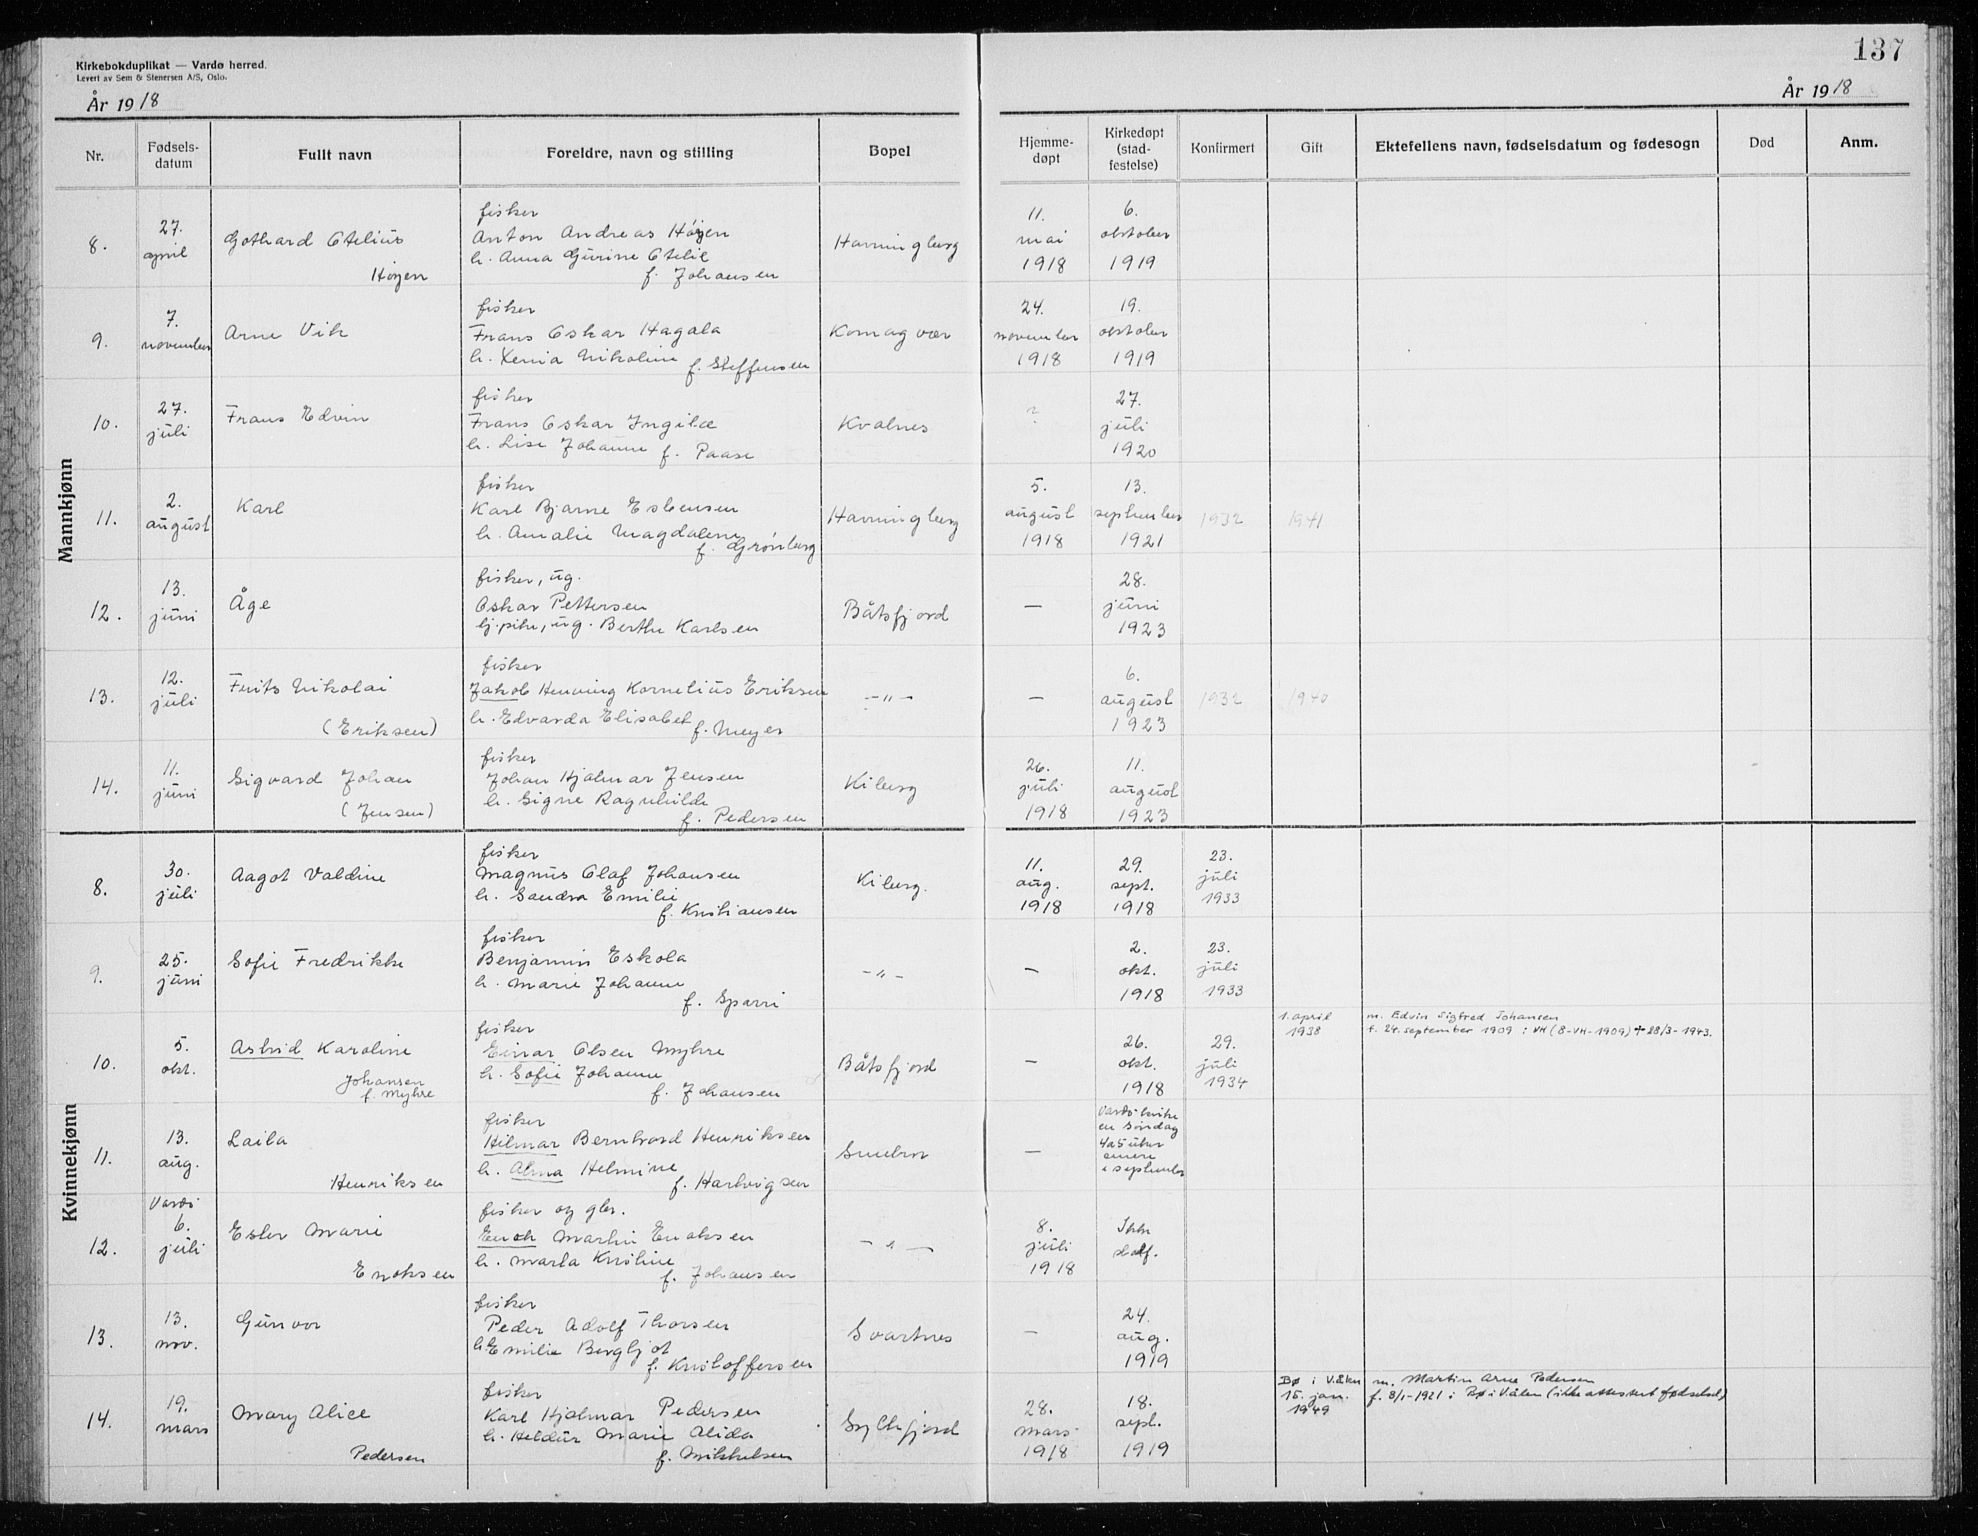 137
Kirkebokduplikat — Vardø herred.
Levert av Sem & Stenersen A/S, Oslo.
År 1918
År 1918
Nr. Fødsels-datum Fullt navn Foreldre, navn og stilling Bopel Hjemme-døpt Kirkedøpt (stad-festelse) Konfirmert Gift Ektefellens navn, fødselsdatum og fødesogn Død Anm.
Mannkjønn
8. 27. april Gothard Otelius Høyen
fisker
Anton Andreas Høyen
h. Anna Gurine Otelie
f. Johansen
Havningberg 11. mai 1918 6. oktober 1919
9. 7. november Arne Vik
fisker
Frans Oskar Hagala
h. Xenia Nikoline
f. Steffensen
Komagvær 24. november 1918 19. oktober 1919
10. 27. juli Frans Edvin
fisker
Frans Oskar Ingilæ
h. Lise Johanne f. Paase
Kvalnes ? 27. juli 1920
11. 2. august Karl
fisker
Karl Bjarne Esbensen
h. Amalie Magdalene
f. Grønberg
Havningberg 5. august 1918 13. september 1921 1932 1941
12. 13. juni Åge
fisker, ug.
Oskar Pettersen
tj.pike, ug. Berthe Karlsen
Båtsfjord — 28. juni 1923
13. 12. juli Frits Nikolai (Eriksen)
fisker
Jakob Henning Kornelius Eriksen
h. Edvarda Elisabet
f. Meyer
—"— — 6. august 1923 1932 1940
14. 11. juni Sigvard Johan (Jensen)
fisker
Johan Hjalmar Jensen
h. Signe Ragnhilde
f. Pedersen
Kiberg 26. juli 1918 11. august 1923
Kvinnekjønn
8. 30. juli Aagot Valdine
fisker
Magnus Olaf Johansen
h. Sandra Emilie
f. Kristiansen
Kiberg. 11. aug. 1918 29. sept. 1918 23. juli 1933
9. 25. juni Sofie Fredrikke
fisker
Benjamin Eskola
h. Marie Johanne
f. Sparri
—"— — 2. okt. 1918 23. juli 1933
10. 5. okt. Astrid Karoline Johansen f. Myhre
fisker
Einar Olsen Myhre
h. Sofie Johanne
f. Johansen
Båtsfjord — 26. okt. 1918 29. juli 1934 1. april 1938
m. Edvin Sigfred Johansen
f. 24. september 1909 i VH (8-VH-1909) † 28/3-1943.
11. 13. aug. Laila Henriksen
fisker
Hilmar Bernhard Henriksen
h. Alma Helmine
f. Hartvigsen
— Vardø kirke
en søndag
4 a 5 uker
i september
12. Vardø 6. juli Ester Marie Enoksen
fisker og gbr.
Enok Martin Enoksen
h. Marta Kristine
f. Johansen
—"— 8. juli 1918 Ikke
13. 13. nov. Gunvor
fisker
Peder Adolf Thorsen
h. Emilie Bergljot
f. Kristoffersen
Svartnes — 24. aug. 1919
14. 19. mars Mary Alice Pedersen
fisker
Karl Hjalmar Pedersen
h. Heldur Marie Alida
f. Mikkelsen
Syltefjord 28. mars 1918 18. sept. 1919 Bø i V.ålen 15. jan. 1949
m. Martin Arne Pedersen
f. 8/1-1921 i Bø i V.ålen (ikke attestert fødselsd.)